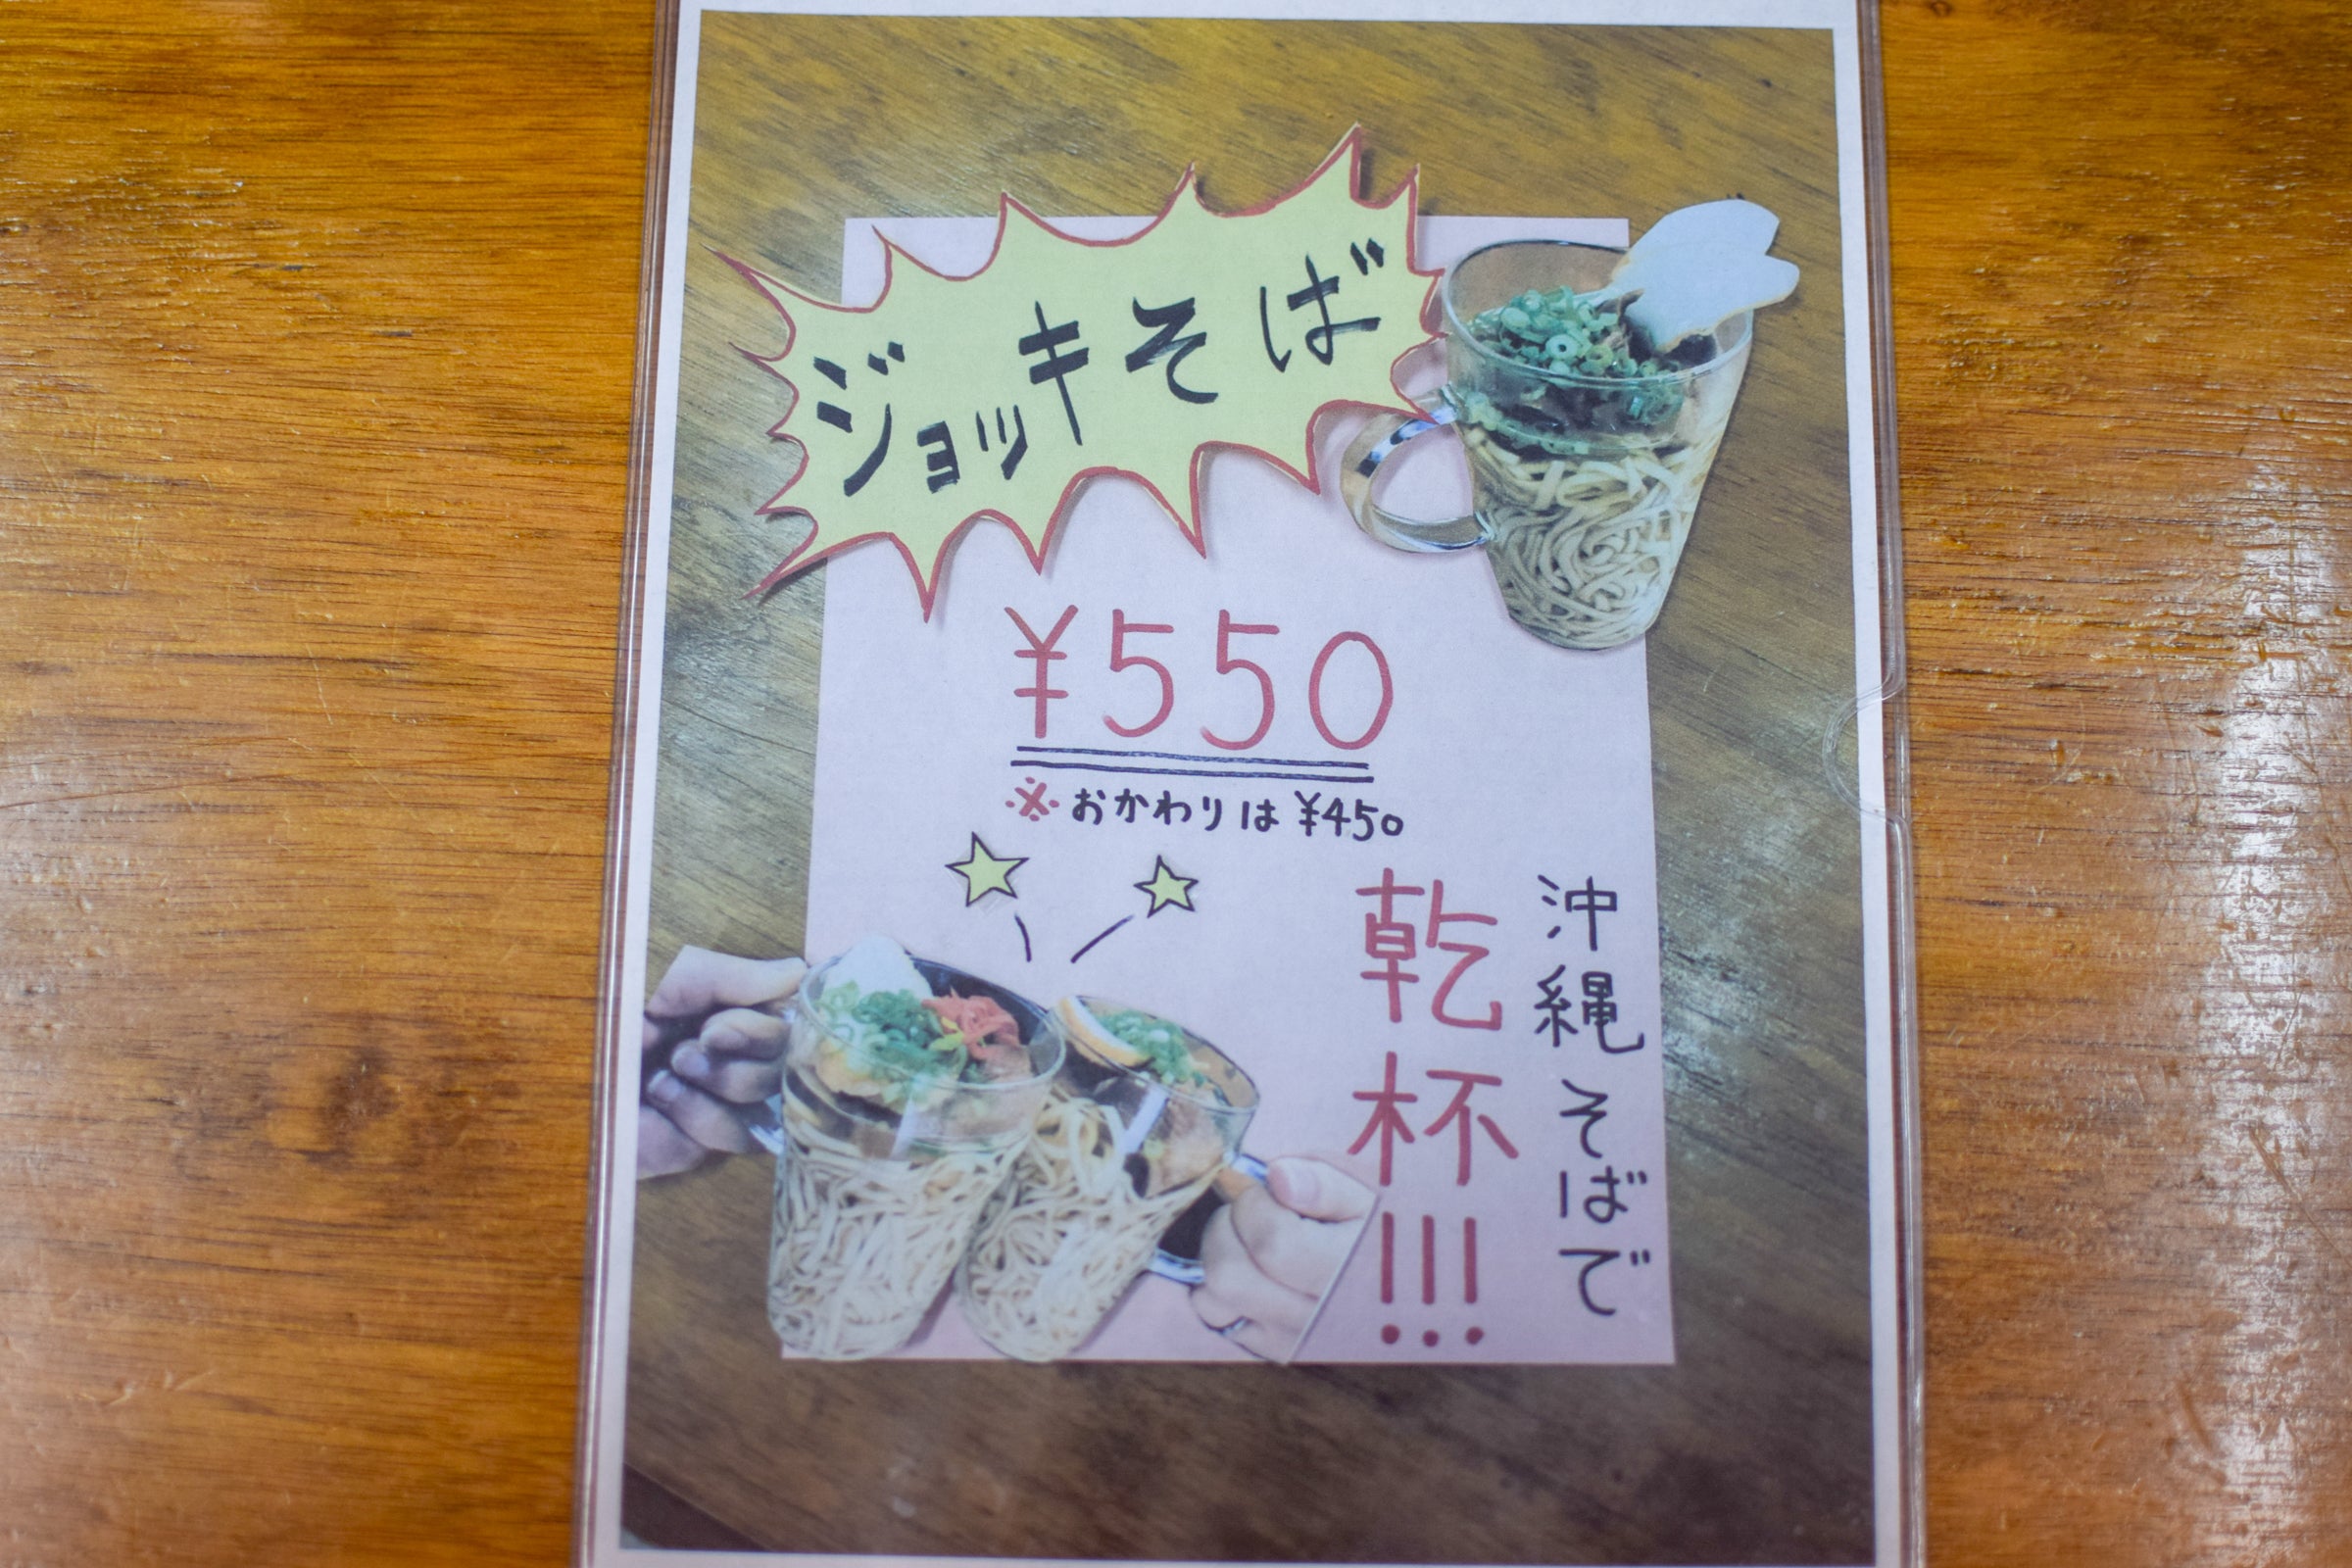 ジョッキそば
¥550
※おかわりは ¥450
沖縄そばで
乾杯!!!